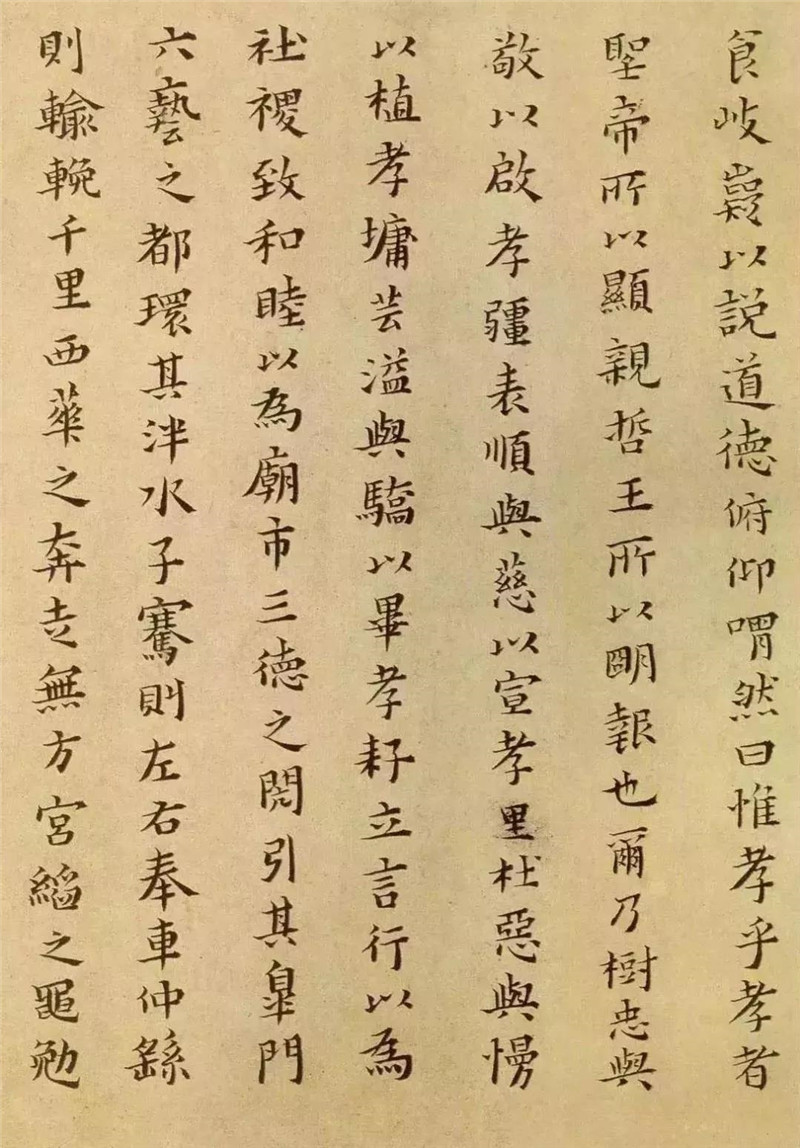 食岐嶷以説道德俯仰喟然曰惟孝乎孝者
聖帝所以顯親哲王所以明報也爾乃樹忠與
敬以啟孝疆表順與慈以宣孝里杜惡與慢
以植孝墉芸溢與驕以畢孝耔立言行以為
社禝致和睦以為廟市三德之閎引其皐門
六藝之都環其泮水子騫則左右奉車仲繇
則輸輓千里西華之奔走無方宮縚之黽勉